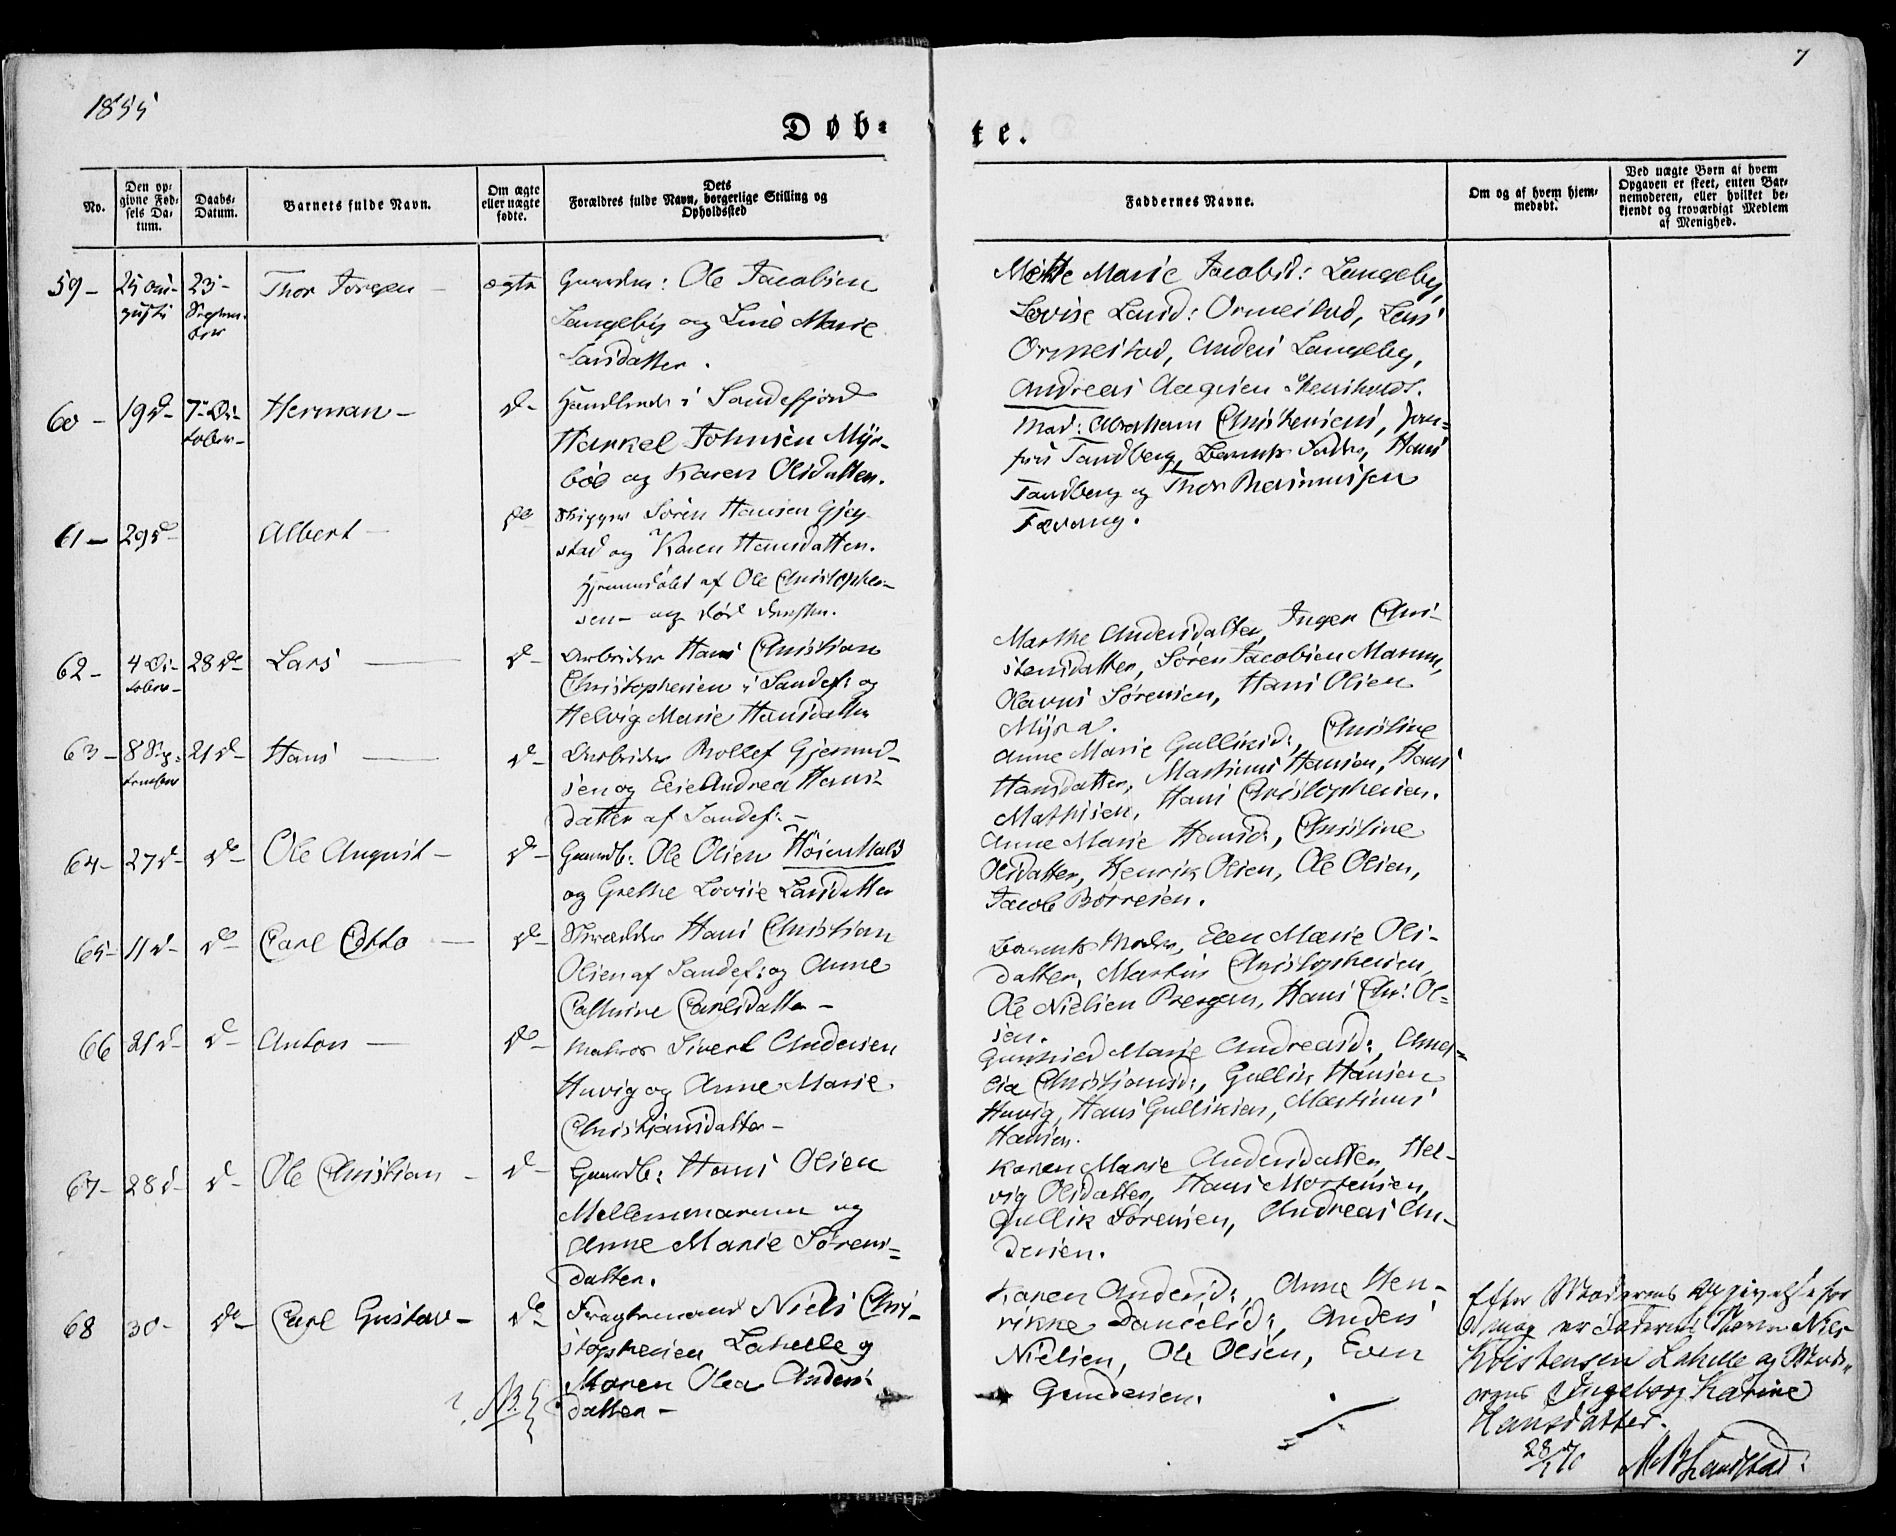 1855
7
Døb-
te.
No.
Den op-
givne Fød-
sels Da-
tum.
Daabs-
Datum.
Barnets fulde Navn.
Om ægte
eller uægte
fødte.
Dets
Forældres fulde Navn, borgerlige Stilling og
Opholdssted
Faddernes Navne.
Om og af hvem hjem-
medøbt.
Ved uægte Børn af hvem
Opgaven er skeet, enten Bar-
nemoderen, eller hvilket be-
kjendt og troværdigt Medlem
af Menighed.
59-
25 Au-
gusti
23-
Septem-
ber
Thor Jørgen -
ægte
Gaardm: Ole Jacobsen
Langeby og Line Marie
Larsdatter.
Mette Marie Jacobsd: Langeby,
Lovise Larsd: Ormestad, Lars
Ormestad, Anders Langeby,
Andreas Aagesen
60-
19 d-
7- Oc-
tober-
Herman-
d-
i Sandefjord
Harkel Johnsen Myr-
böe og Karen Olsdatter.
Mad: Abraham Christensens, Jom-
fru Tandberg, Barnets Fader, Hans
Tandberg og Thor Rasmussen
Tævang.
61-
29 d-
Albert-
do
Skipper Sören Hansen Gjey-
stad og Karen Hansdatter.
Hjemmedöbt af Ole Christopher-
sen- og död
62-
4 Oc-
tober-
28 do
Lars
d-
Arbeider Hans Christian
Christophersen i Sandef: og
Helvig Marie Hansdatter
Marthe Andersdatter, Inger Chri-
stensdatter, Søren Jacobsen Marum,
Olavus Sørensen, Hans Olsen
Myra.
63-
8 Sep-
tember
21 d-
Hans
d-
Arbeider Rollef Gjerud-
sen og Elie Andrea Hans-
datter af Sandef: -
Anne Marie Gulliksd:, Christine
Hansdatter, Martinus Hansen, Hans
Mathisen, Hans Christophersen.
64-
27 d-
do-
Ole August-
d-
Gaardb: Ole Olsen
og Grethe Lovise Larsdatter
Anne Marie Hansd:, Christine
Olsdatter, Henrik Olsen, Ole Olsen,
Jacob Børresen.
65-
11 d-
do-
Carl Otto
d-
Skrædder Hans Christian
Olsen af Sandef: og Anne
Cathrine Carlsdatter-
Barnets Moder, Elen Marie Ols-
datter, Martin Christophersen,
Ole Nielsen Preegen, Hans Chr: Ol-
sen.
66
21 d-
d-
Anton
do-
Matros Sivert Andersen
Huvig og Anne Marie
Christiansdatter-
Gunhild Marie Andreasd:, Ame-
lia Christiansd:, Gullik Hansen
Huvig, Hans Gulliksen, Martinus
Hansen.
67-
28 d-
d-
Ole Christian
d-
Gaardb: Hans Olsen
Mellemmarum og
Anne Marie Sørens-
datter.
Karen Marie Andersdatter, Hel-
vig Olsdatter, Hans Mortensen,
Gullik Sørensen, Andreas An-
dersen.
68
30-
do-
Carl Gustav-
do-
Fragtemand Niels Chri-
stophersen Lahelle og
Maren Olea Anders-
datter-
NB.
Karen Andersd:, Anne Hen-
rikke Danielsd:, Anders
Nielsen, Ole Olsen, Even
Gundersen.
Efter Moderens Opgivelse for
mig er Faderens Navn Niels
Kristensen Lahelle og Mod-
erens Ingeborg Karine
Hansdatter.
28/1 70
M B Landstad